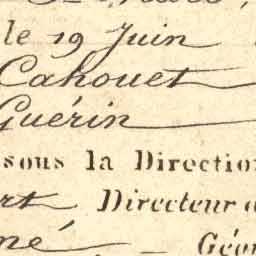 le 19 Juin
Cahouet
Guérin
sous la Direction
rt Directeur d
né, Géo